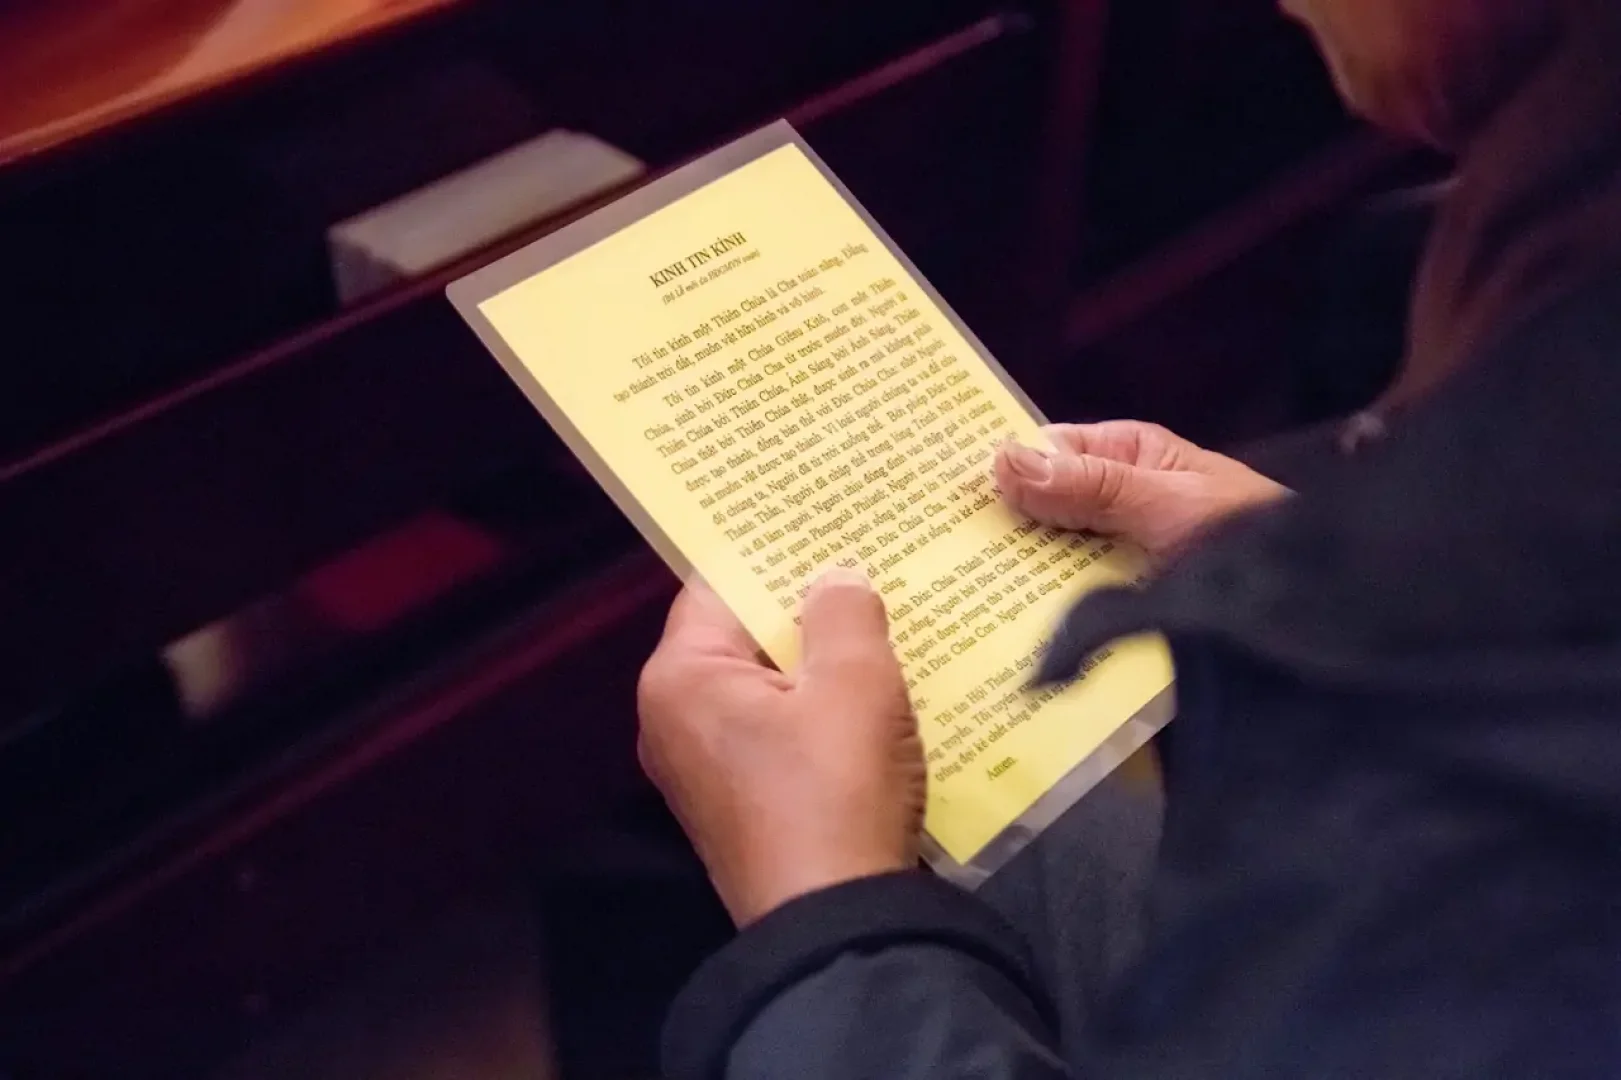 KINH TIN KÍNH
(Bộ Lễ mới do HĐGMVN soạn)
Tôi tin kính một Thiên Chúa là Cha toàn năng, Đấng
tạo thành trời đất, muôn vật hữu hình và vô hình.
Tôi tin kính một Chúa Giêsu Kitô, con một Thiên
Chúa, sinh bởi Đức Chúa Cha từ trước muôn đời. Người là
Thiên Chúa bởi Thiên Chúa, Ánh Sáng bởi Ánh Sáng, Thiên
Chúa thật bởi Thiên Chúa thật, được sinh ra mà không phải
được tạo thành, đồng bản thể với Đức Chúa Cha: nhờ Người
mà muôn vật được tạo thành. Vì loài người chúng ta và để cứu
độ chúng ta, Người đã từ trời xuống thế. Bởi phép Đức Chúa
Thánh Thần, Người đã nhập thể trong lòng Trinh Nữ Maria,
và đã làm người. Người chịu đóng đinh vào thập giá vì chúng
ta, thời quan Phongxiô Philatô; Người chịu khổ hình và mai
táng, ngày thứ ba Người sống lại như lời Thánh Kinh
lên hữu Đức Chúa Cha, và Người
để phán xét kẻ sống và kẻ chết,
cùng.
kính Đức Chúa Thánh Thần là Thiên
sự sống, Người bởi Đức Chúa Cha và
Người được phụng thờ và tôn vinh cùng với
và Đức Chúa Con. Người đã dùng các tiên tri mà
Tôi tin Hội Thánh duy nhất
truyền. Tôi tuyên
trông đợi kẻ chết sống lại và sự sống đời sau.
Amen.